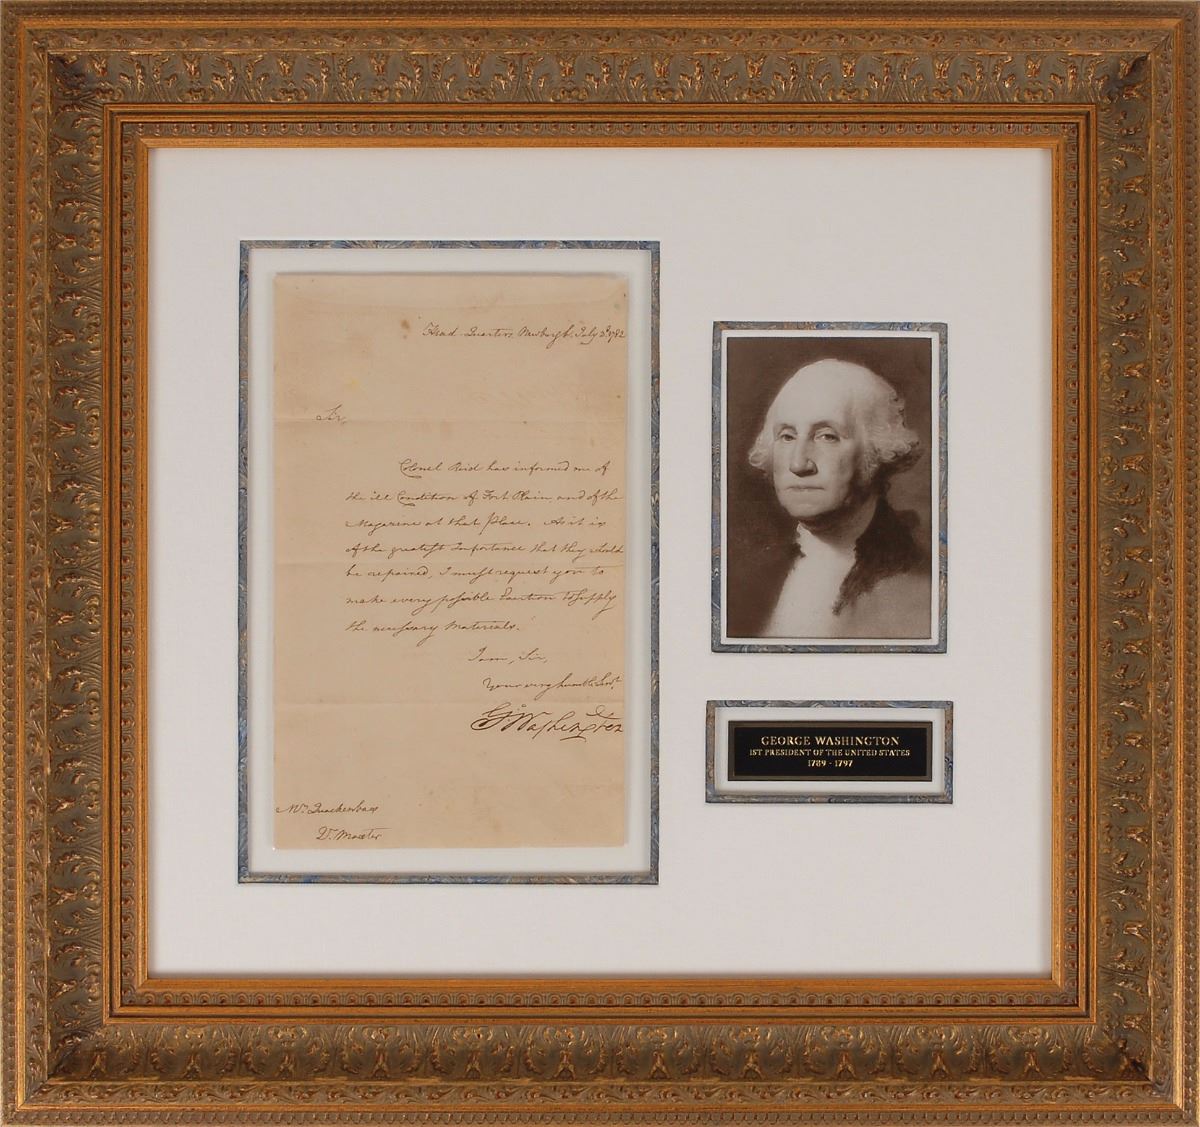 Head Quarters, Newburgh, July 3d 1782
Sir,
Colonel Reid has informed me of
the ill Condition of Fort Plain, and of the
Magazine at that Place. As it is
of the greatest Importance that they should
be repaired, I must request you to
make every possible Exertion to supply
the necessary Materials.
I am, Sir,
Your very humble Servt
Go Washington
Mr Quackenbos
D. Master
GEORGE WASHINGTON
1ST PRESIDENT OF THE UNITED STATES
1789 - 1797